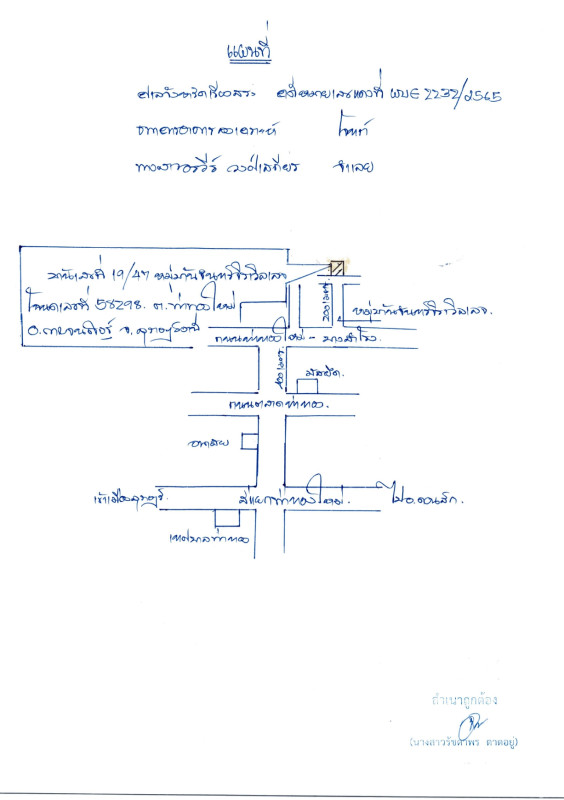 แผนที่
ศาลจังหวัดเวียงสระ คดีหมายเลขแดงที่ ผบE 2232/2565
ธนาคารอาคารสงเคราะห์ โจทก์
จำเลย
บ้านเลขที่ 19/47 หมู่บ้านจันทร์จิราวิลเลจ
โฉนดเลขที่ 58298 ต.ท่าทองใหม่
อ.กาญจนดิษฐ์ จ.สุราษฎร์ธานี
200 เมตร
หมู่บ้านจันทร์จิราวิลเลจ
ถนนท่าทองใหม่ - บางสำโรง
400 เมตร
มัสยิด
ถนนตลาดท่าทอง
อนามัย
เข้าเมืองสุราษฎร์
สี่แยกท่าทองใหม่
ไปอ.ดอนสัก
เทศบาลท่าทอง
สำเนาถูกต้อง